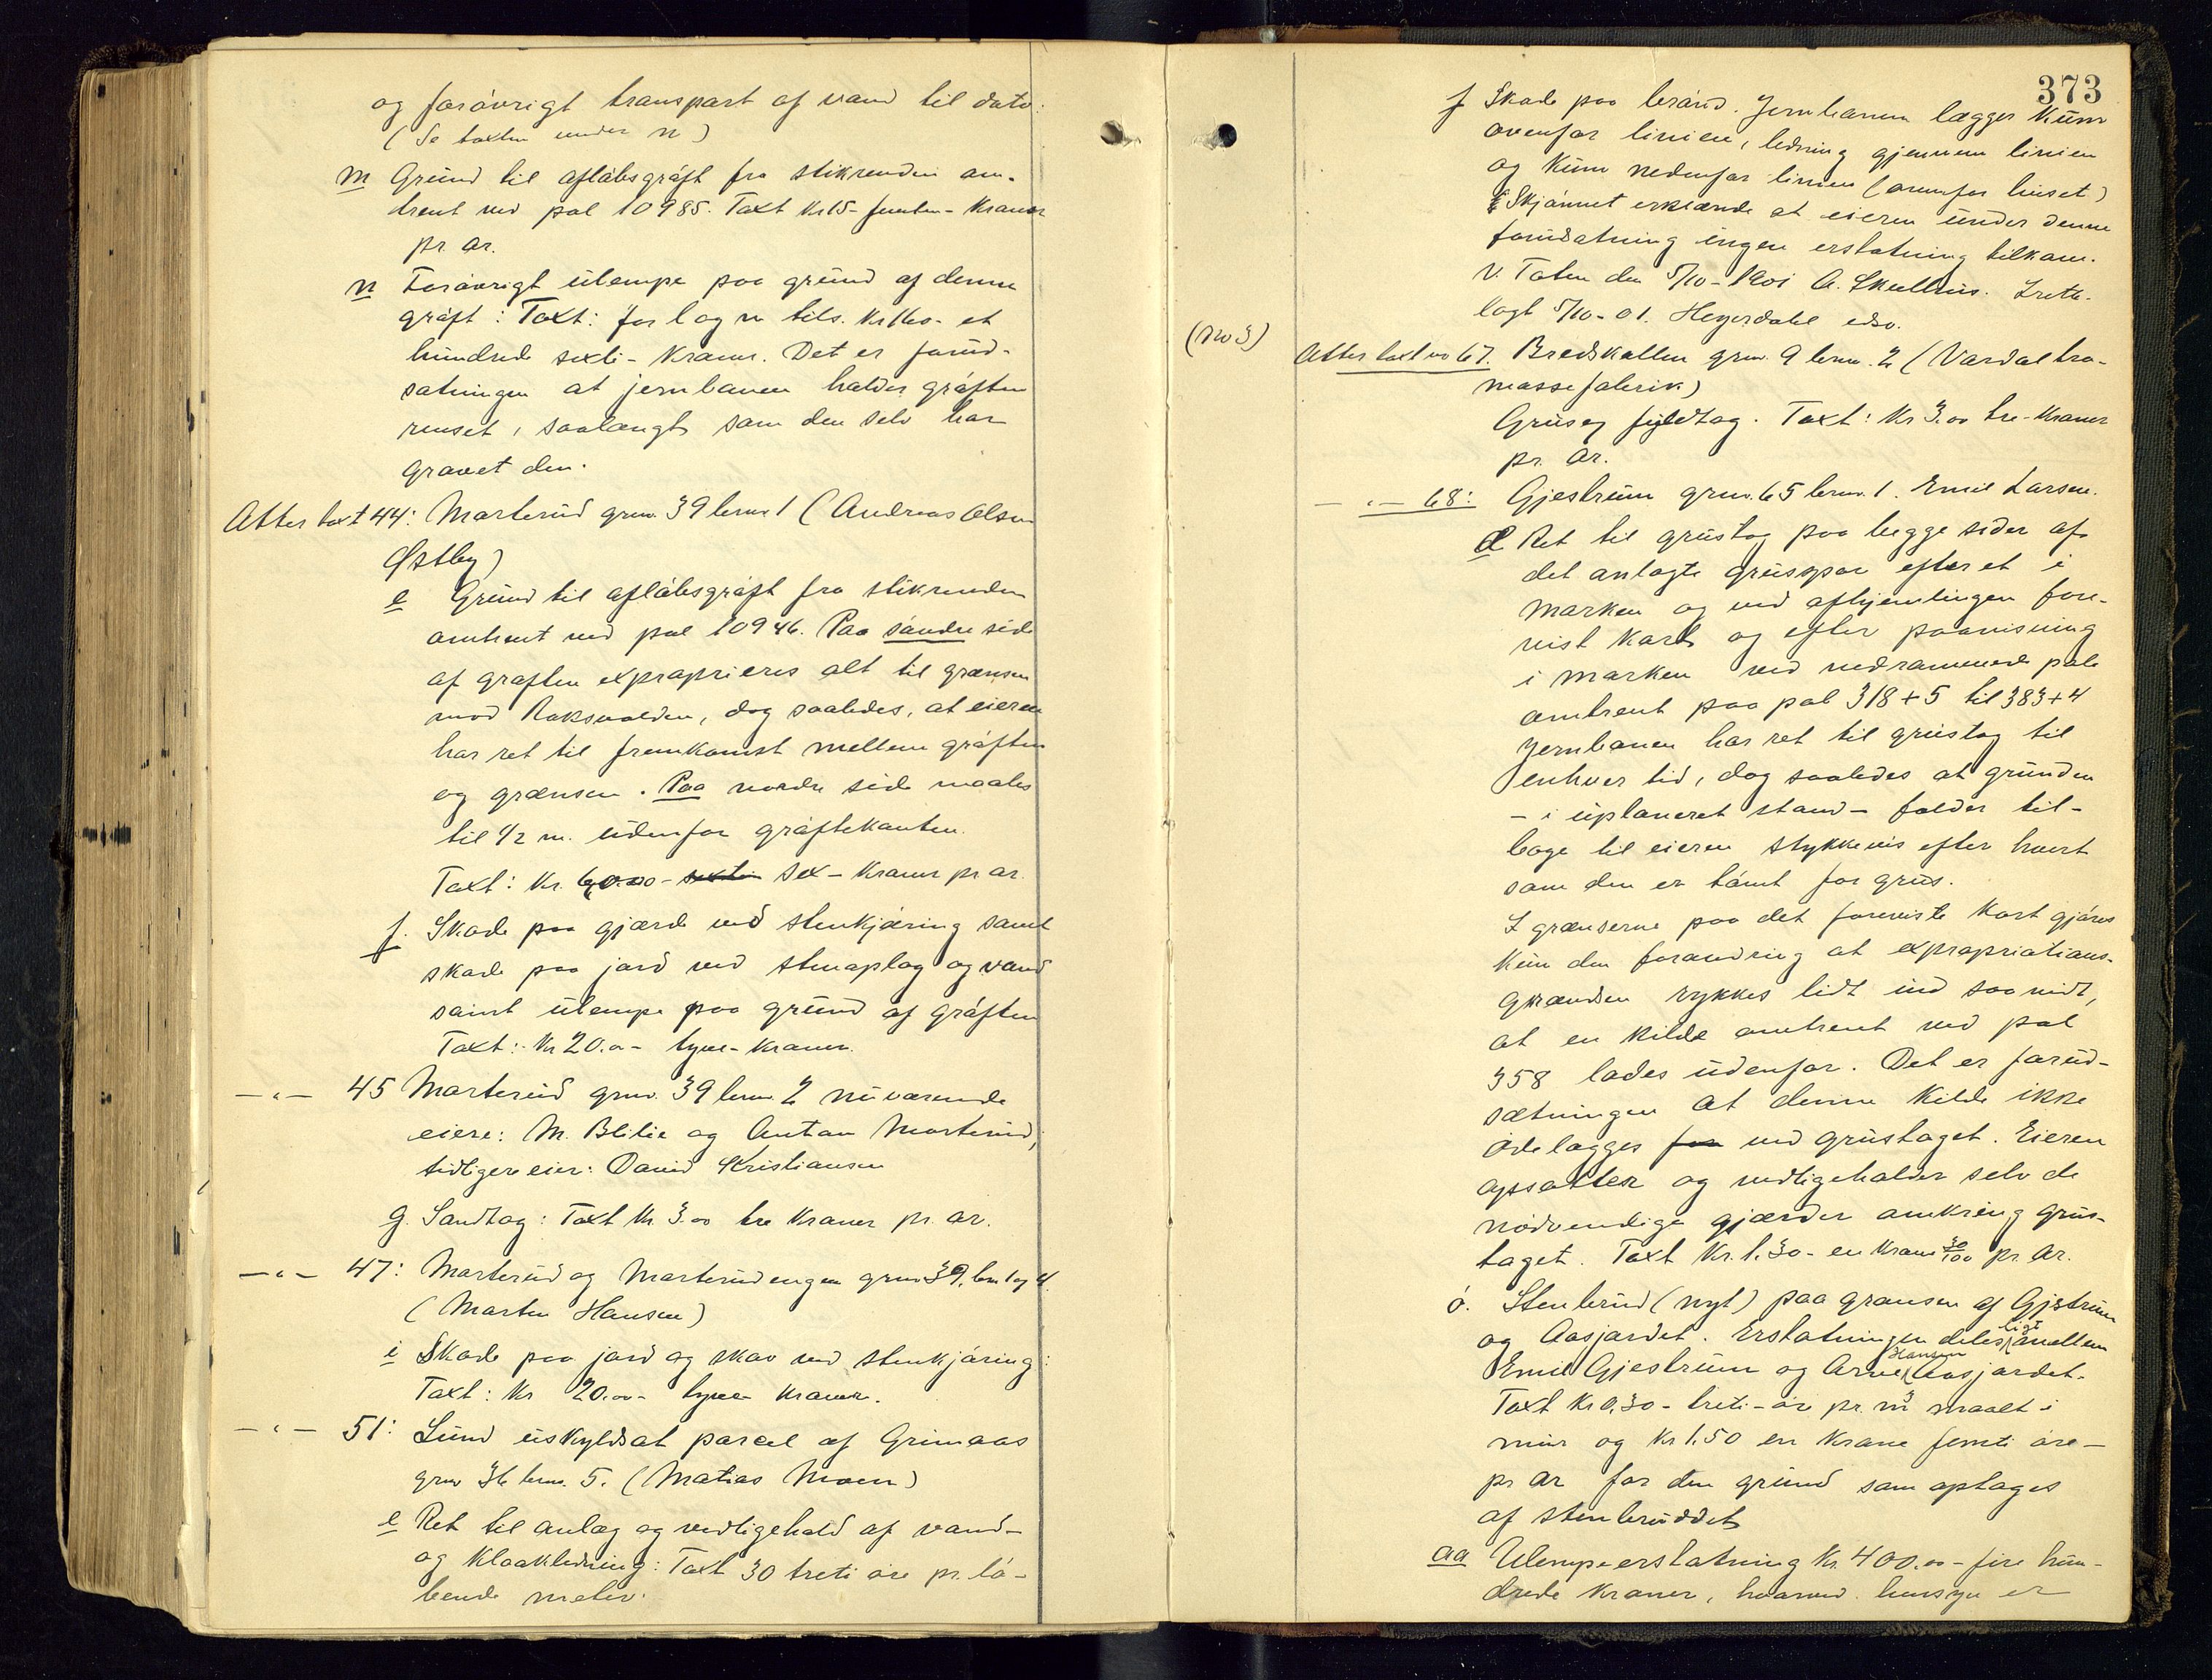 og forøvrigt transport af vand til dato.
(Se taxten under n)
m Grund til afløbsgrøft fra stikrenden om-
trent ved pæl 10985. Taxt Kr 15 - femten - Kroner
pr. ar.
n Forøvrigt ulempe paa grund af denne
grøft: Taxt: for l og n tils. Kr 160 - et
hundrede sexti - Kroner. Det er forud-
sætningen at jernbanen holder grøften
renset, saalangt som den selv har
gravet den.
Atter taxt 44: Marterud grno. 39 brno 1 (Andreas Olsen
Østby)
e Grund til afløbsgrøft fra stikrenden
omtrent ved pæl 10946. Paa søndre side
af grøften exproprieres alt til grænsen
mod Raksvolden, dog saaledes, at eieren
har ret til fremkomst mellem grøften
og grænsen. Paa nordre side maales
til 1/2 m. udenfor grøftekanten.
Taxt: Kr. 6,00 - sexti sex - Kroner pr ar.
f. Skade paa gjærde ved stenkjøring samt
skade paa jord ved stenoplag og vand
samt ulempe paa grund af grøften
Taxt: Kr 20.00 - tyve - Kroner.
-"- 45 Marterud grno. 39 brno. 2 nuværende
eiere: M. Blilie og Anton Marterud,
tidligere eier: David Kristiansen
g. Sandtag: Taxt Kr. 3.00 tre Kroner pr. ar.
-"- 47: Marterud og Marterudengen grno 39, brn 1 og 4.
(Marten Hansen)
i Skade paa jord og skov ved stenkjøring:
Taxt: Kr 20.00 - tyve Kroner.
-"- 51: Lund uskyldsat parcel af Grimaas
grno 36 brno. 5. (Matias Moen)
e Ret til anlæg og vedligehold af vand-
og Kloakledning: Taxt 30 treti øre pr. lø-
bende meter.
373
f Skade paa brønd. Jernbanen lægger Kum
ovenfor linien, ledning gjennem linien
og Kum nedenfor linien (ovenfor huset)
Skjønnet erklærede at eieren under denne
forudsætning ingen erstatning tilkom.
V. Toten den 5/10-1901 A. Skullerus. Irette-
lagt 5/10-01. Heyerdahl edsv.
(No 3)
Atter taxt no 67. Bredskallen grno. 9 brno. 2 (Vardal træ-
massefabrik)
Grus og fyldtag. Taxt: Kr 3.00 tre - Kroner
pr. ar.
-"- 68: Gjestrum grno. 65 brno. 1. Emil Larsen.
d Ret til grustag paa begge sider af
det anlagte grusspor efter et i
marken og ved afhjemlingen fore-
vist Kart og efter paavisning
i marken ved nedrammede pæle
omtrent paa pæl 318+5 til 383+4
Jernbanen har ret til grustag til
enhver tid, dog saaledes at grunden
- i uplaneret stand - falder til-
bage til eieren stykkevis efter hvert
som den er tømt for grus.
I grænserne paa det foreviste Kart gjøres
Kun den forandring at expropriations-
grændsen rykkes lidt ind saa vidt,
at en Kilde omtrent ved pæl
358 lades udenfor. Det er forud-
sætningen at denne Kilde ikke
ødelægges for ved grustaget. Eieren
opsætter og vedligeholder selv de
nødvendige gjærder omkring grus-
taget. Taxt Kr. 1.30 - en Krone 30/100 pr. ar.
ø. Stenbrud (nyt) paa grænsen af Gjestrum
og Aasjordet. Erstatningen deles ligt mellem
Emil Gjestrum og Arne Hansen Aasjordet.
Taxt Kr 0,30 - treti - øre pr. m3 maalt i
mur og Kr 1.50 en Krone femti øre -
pr ar for den grund som optages
af stenbruddet
aa Ulempeerstatning Kr. 400.00 - fire hun-
drede Kroner, hvorved hensyn er